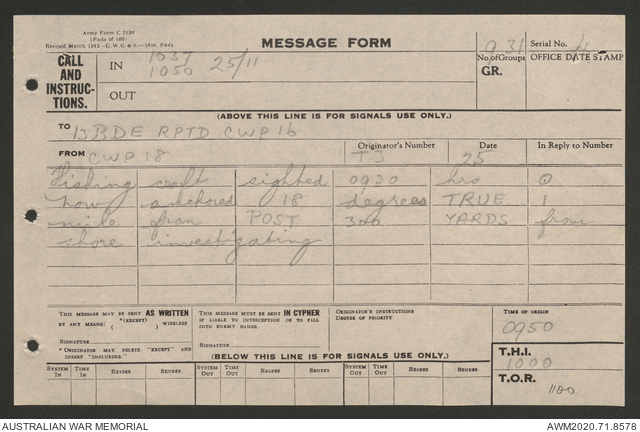 Army Form C 2136
(Pads of 100)
Revised March 1942
MESSAGE FORM
Serial No.
CALL AND INSTRUC-TIONS.
IN 1037
1050 25/11
No. of Groups
GR.
OFFICE DATE STAMP
OUT
(ABOVE THIS LINE IS FOR SIGNALS USE ONLY.)
TO 13 BDE RPTD CWP 16
FROM CWP 18
Originator's Number T3
Date 25
In Reply to Number
Fishing craft sighted 0930 hrs
now anchored 18 degrees TRUE 1
mile from POST 300 YARDS from
shore investigating
THIS MESSAGE MAY BE SENT AS WRITTEN
BY ANY MEANS. (EXCEPT) WIRELESS
SIGNATURE
* ORIGINATOR MAY DELETE "EXCEPT" AND
INSERT "INCLUDING."
THIS MESSAGE MUST BE SENT IN CYPHER
IF LIABLE TO INTERCEPTION OR TO FALL
INTO ENEMY HANDS.
SIGNATURE
ORIGINATOR'S INSTRUCTIONS
DEGREE OF PRIORITY
TIME OF ORIGIN
0950
(BELOW THIS LINE IS FOR SIGNALS USE ONLY.)
T.H.I.
1000
SYSTEM IN TIME IN READER SENDER SYSTEM OUT TIME OUT READER SENDER SYSTEM OUT TIME OUT READER SENDER
T.O.R.
1100
AUSTRALIAN WAR MEMORIAL
AWM2020.71.8578